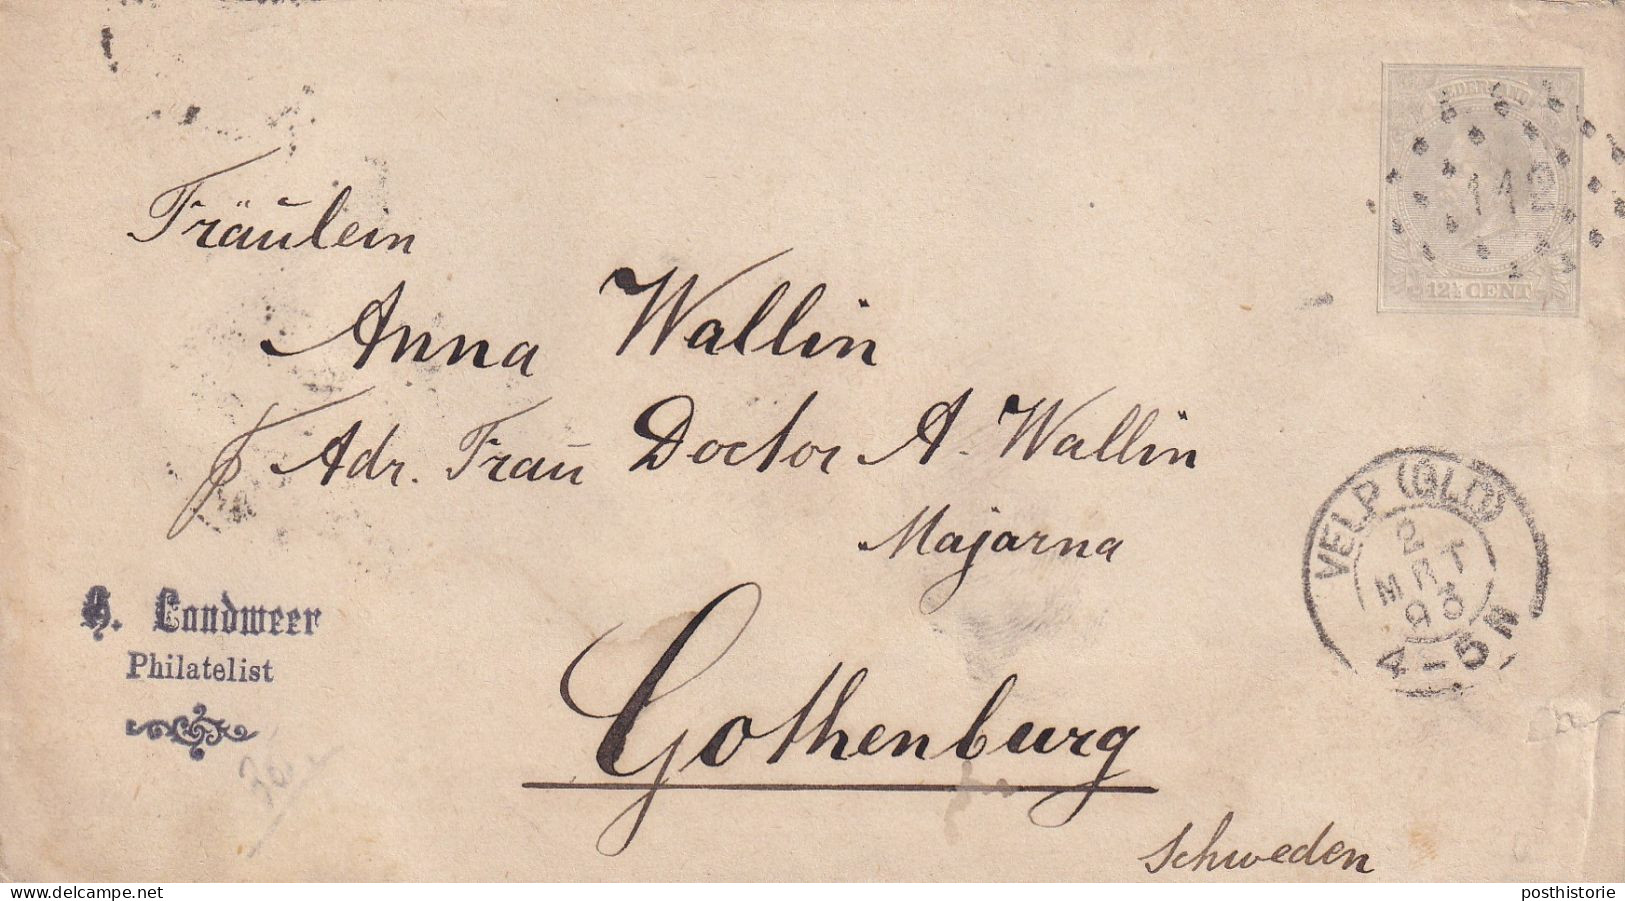 NEDERLAND
112
12½ CENT
Fräulein
Anna Wallin
Adr. Frau Doctor A. Wallin
Majorna
VELP (GLD)
2 T
MRT
93
4-5N
H. Landweer
Philatelist
Gothenburg
Schweden
delcampe.net
posthistorie